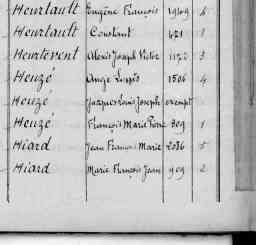 Heurtault Eugène François 1969 6
Heurtault Constant 421 1
Heurtevent Alexis Joseph Victor 1122 3
Heuzé Ange 1506 4
Heuzé Jacques Louis Joseph exempt
Heuzé François Marie Pierre 309 1
Hiard Jean François Marie 2036 5
Hiard Marie François Jean 909 2